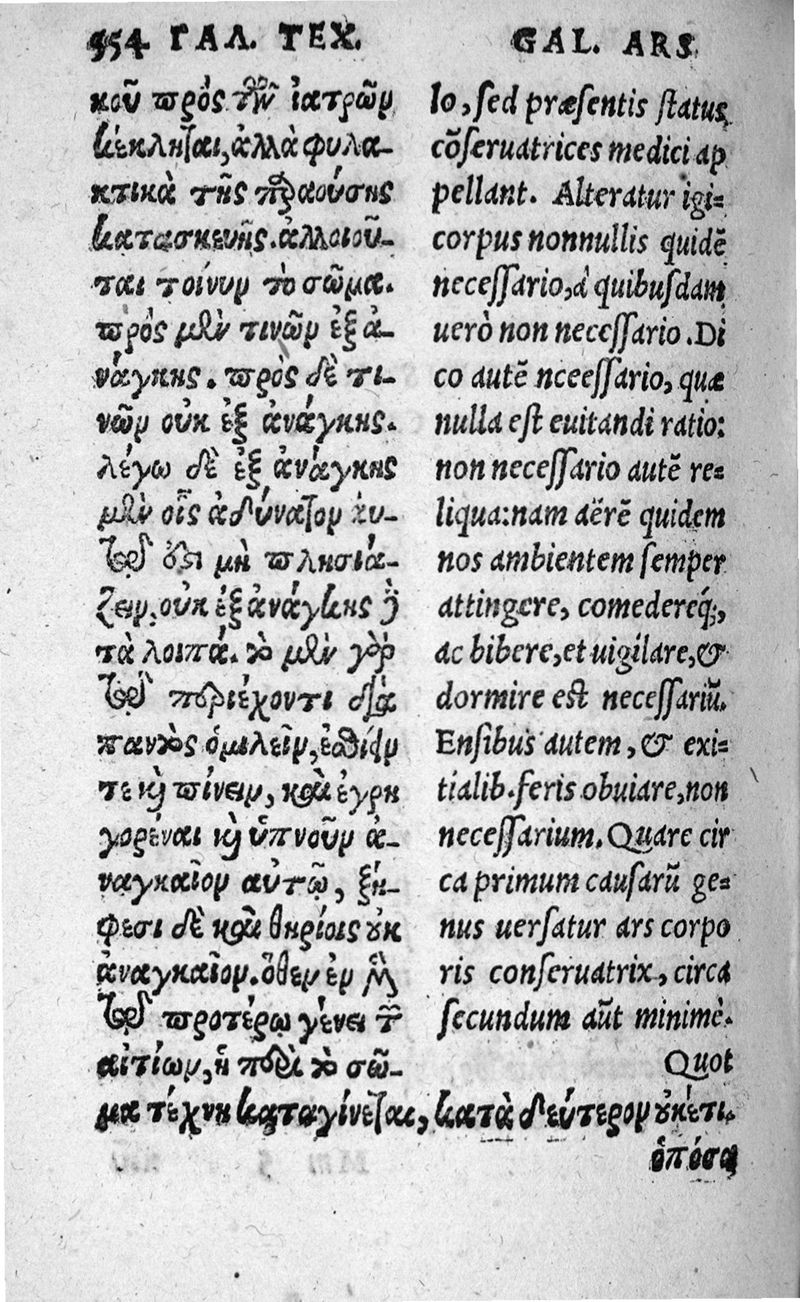 554 ΓΑΛ. ΤΕΧ.
κοῦ πρὸς τῶν ἰατρῶν
κέκληται, ἀλλὰ φυλα-
κτικὰ τῆς παρούσης
κατασκευῆς. ἀλλοιοῦ-
ται τοίνυν τὸ σῶμα.
πρὸς μὲν τινῶν ἐξ ἀ-
νάγκης. πρὸς δὲ τι-
νῶν οὐκ ἐξ ἀνάγκης.
λέγω δὲ ἐξ ἀνάγκης
μὲν οἷς ἀδύνατον
μὴ πλησιά-
ζειν, οὐκ ἐξ ἀνάγκης δὲ
τὰ λοιπά. τὸ μὲν γὰρ
τῷ περιέχοντι διὰ
παντὸς ὁμιλεῖν, ἐσθίειν
τε καὶ πίνειν, καὶ ἐγρη
γορέναι καὶ ὑπνοῦν ἀ-
ναγκαῖον αὐτῷ, ξί-
φεσι δὲ καὶ θηρίοις οὐκ
ἀναγκαῖον. ὅθεν ἐν μὲν
τῷ προτέρῳ γένει τῶν
αἰτίων, ἡ περὶ τὸ σῶ-
μα τέχνη καταγίνεται, κατὰ δεύτερον οὐκέτι.
ὁπόσα
GAL. ARS
lo, sed præsentis status,
cõseruatrices medici ap
pellant. Alteratur igi=
corpus nonnullis quidẽ
necessario, à quibusdam
uerò non necessario. Di
co autẽ nceessario, quæ
nulla est euitandi ratio:
non necessario autẽ re=
liqua: nam aërẽ quidem
nos ambientem semper
attingere, comedereq́;,
ac bibere, et uigilare, &
dormire est necessariũ.
Ensibus autem, & exi=
tialib. feris obuiare, non
necessarium. Quare cir
ca primum causarũ ge=
nus uersatur ars corpo
ris conseruatrix, circa
secundum aũt minimè.
Quot